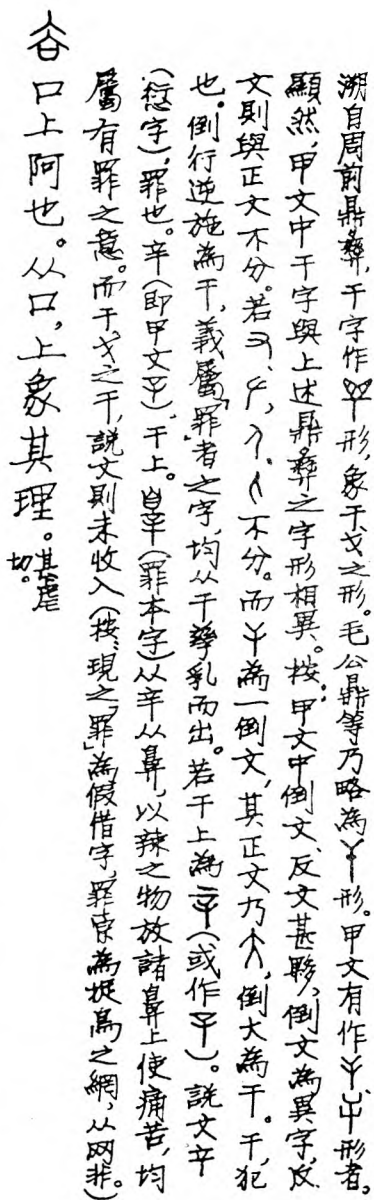 溯自周前鼎彝，干字作形，象干戈之形。毛公鼎等乃略為形。甲文有作形者。
顯然，甲文中干字與上述鼎彝之字形相異。按：甲文中倒文、反文甚夥，倒文為異字，反
文則與正文不分。若不分。而為一倒文，其正文乃大，倒大為干。干，犯
也。倒行逆施為干，義屬「罪」者之字，均从干孳乳而出。若干上為（或作）。說文辛
（愆字），罪也。辛（即甲文），干上。辠（罪本字）从辛从鼻，以辣之物放諸鼻上使痛苦，均
屬有罪之意。而干戈之干，說文則未收入（按：現之「罪」為假借字，罪索為捉鳥之網，从网非。）
谷口上阿也。从口，上象其理。其虐切。